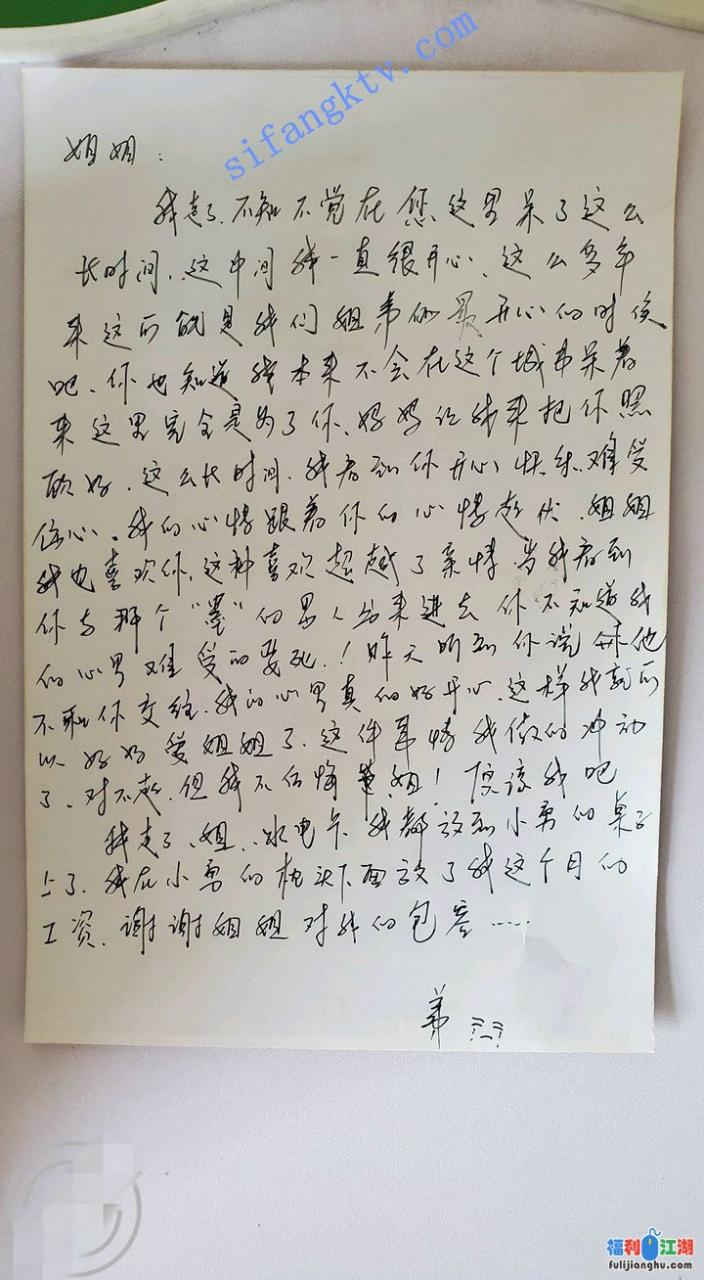 sifangktv.com
姐姐：
我走了、不知不觉在您这里呆了这么
长时间、这中间我一直很开心、这么多年
来这可能是我们姐弟俩最开心的时侯
吧、你也知道我本来不会在这个城市呆着
来这里完全是为了你、妈妈让我来把你照
顾好、这么长时间、我看到你开心快乐、难受
伤心、我的心情跟着你的心情起伏、姐姐
我也喜欢你、这种喜欢超越了亲情、当我看到
你与那个“ ”的男人出来进去你不知道我
的心里难受的要死！昨天听到你说 他
不和你交往、我的心里真的好开心、这样我就可
以好好爱姐姐了、这件事情我做的冲动
了、对不起、但我不后悔 姐！原谅我吧
我走了、姐、水电卡我都放到小勇的桌子
上了、我在小勇的枕头下面放了我这个月的
工资、谢谢姐姐对我的包容……
弟
福利江湖
fulijianghu.com